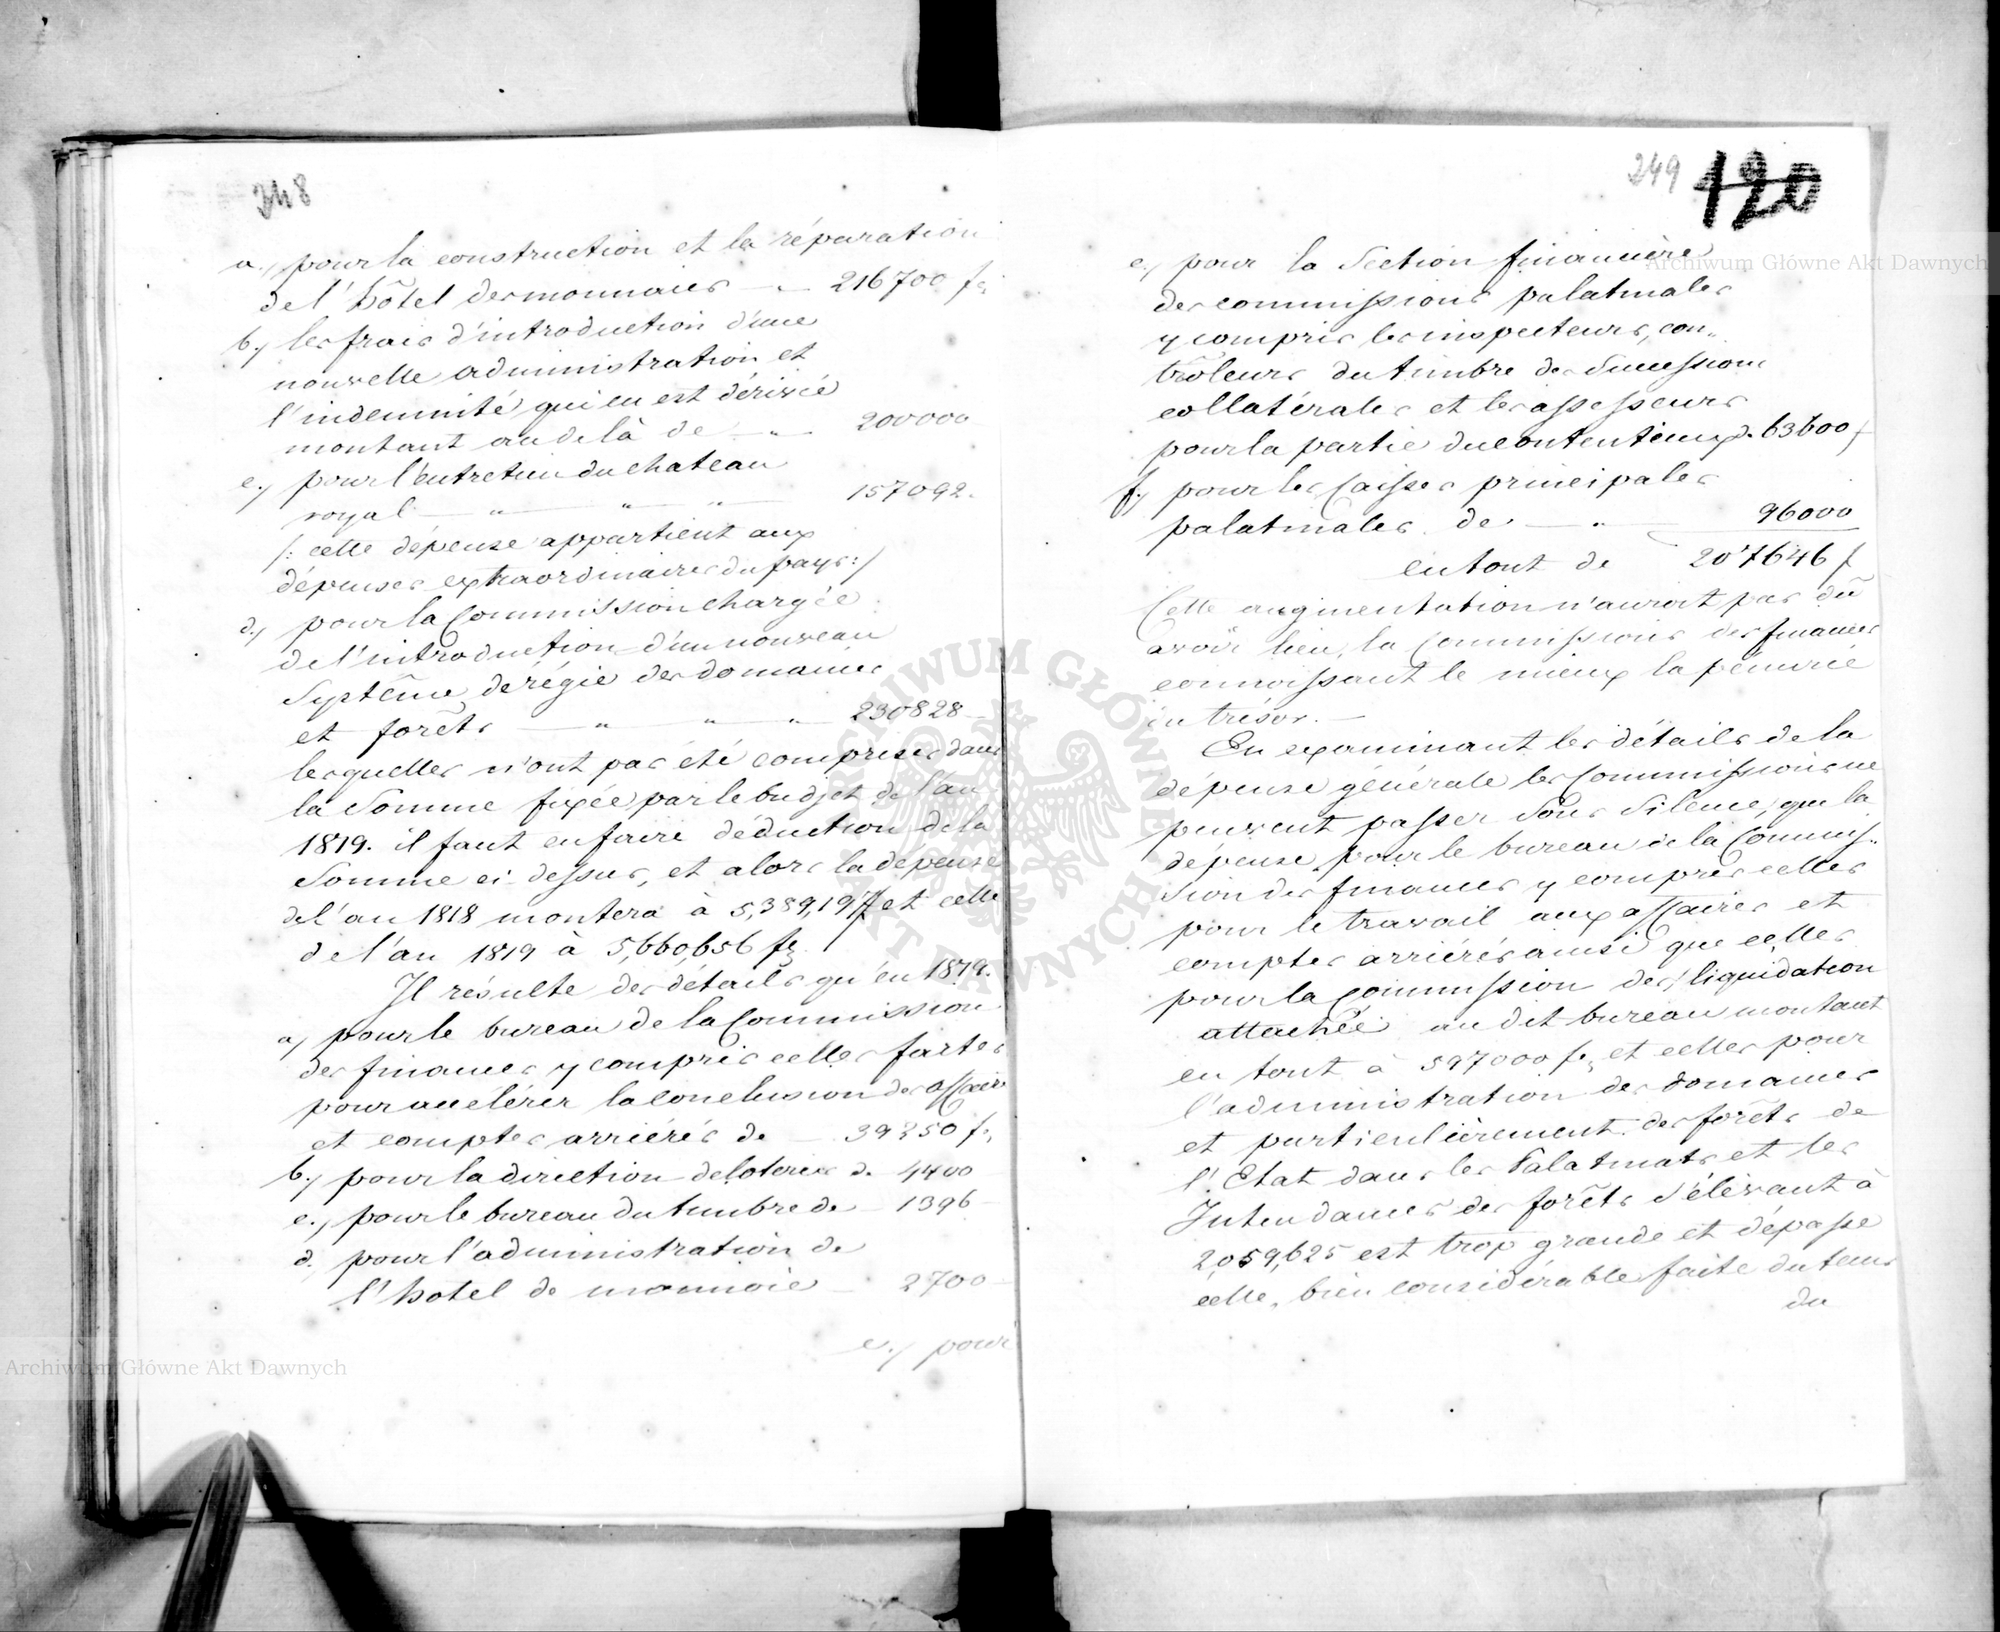 248
a./ pour la construction et la réparation
de l'hôtel des monnaies — „ 216700 f
b./ les frais d'introduction d'une
nouvelle administration et
l'indemnité qui en est dérivée
montant au delà de — „ — 200000
c./ pour l'entretien du chateau
royal — „ — „ — „ — 157092.
/: cette dépense appartient aux
dépenses extraordinaires du pays :/
d./ pour la Commission chargée
de l'introduction d'un nouveau
Systême de régie des domaines
et forêts — „ — „ — „ — 230828 —
lesquelles n'ont pas été comprises dans
la Somme fixée par le budjet de l'an
1819. il faut en faire déduction de la
Somme ci-dessus, et alors la dépense
de l'an 1818 montera à 5,389,197 f et celle
de l'an 1819 à 5,660,656 f
Il résulte des détails qu'en 1819.
a./ pour le bureau de la Commission
des finances y compris celles faites
pour accélérer la conclusion des affaires
et comptes arriérés de — 39250 f
b./ pour la direction de loteries d. 4400
c./ pour le bureau du timbre de — 1396 —
d. pour l'administration de
l'hotel de monnoie — 2700 —
e./ pour
249 120
e./ pour la Section financière
des commissions palatinales
y compris les inspecteurs, con„
trôleurs du timbre des Successions
collatérales et les assesseurs
pour la partie du contentieux d. 63600 f
f./ pour les Caisses principales
palatinales de — „ 96000
en tout de 207646 f
Cette augmentation n'auroit pas dû
avoir lieu, la Commissions des finances
connoissant le mieux la pénurie
du trésor. —
En examinant les détails de la
dépense générale les Commissions ne
peuvent passer Sous Silence, que la
dépense pour le bureau de la Commis„
sion des finances y compris celles
pour le travail aux affaires et
comptes arriérés ainsi que celles
pour la Commission de liquidation
attachée au dit bureau montant
en tout à 597000 f, et celles pour
l'administration des domaines
et particulièrement des forêts de
l'Etat dans les Palatinats et les
Intendances des forêts s'élevant à
2,059,625 est trop grande et dépasse
celle, bien considérable faite du tems
du
Archiwum Główne Akt Dawnych
Archiwum Główne Akt Dawnych
ARCHIWUM GŁÓWNE AKT DAWNYCH